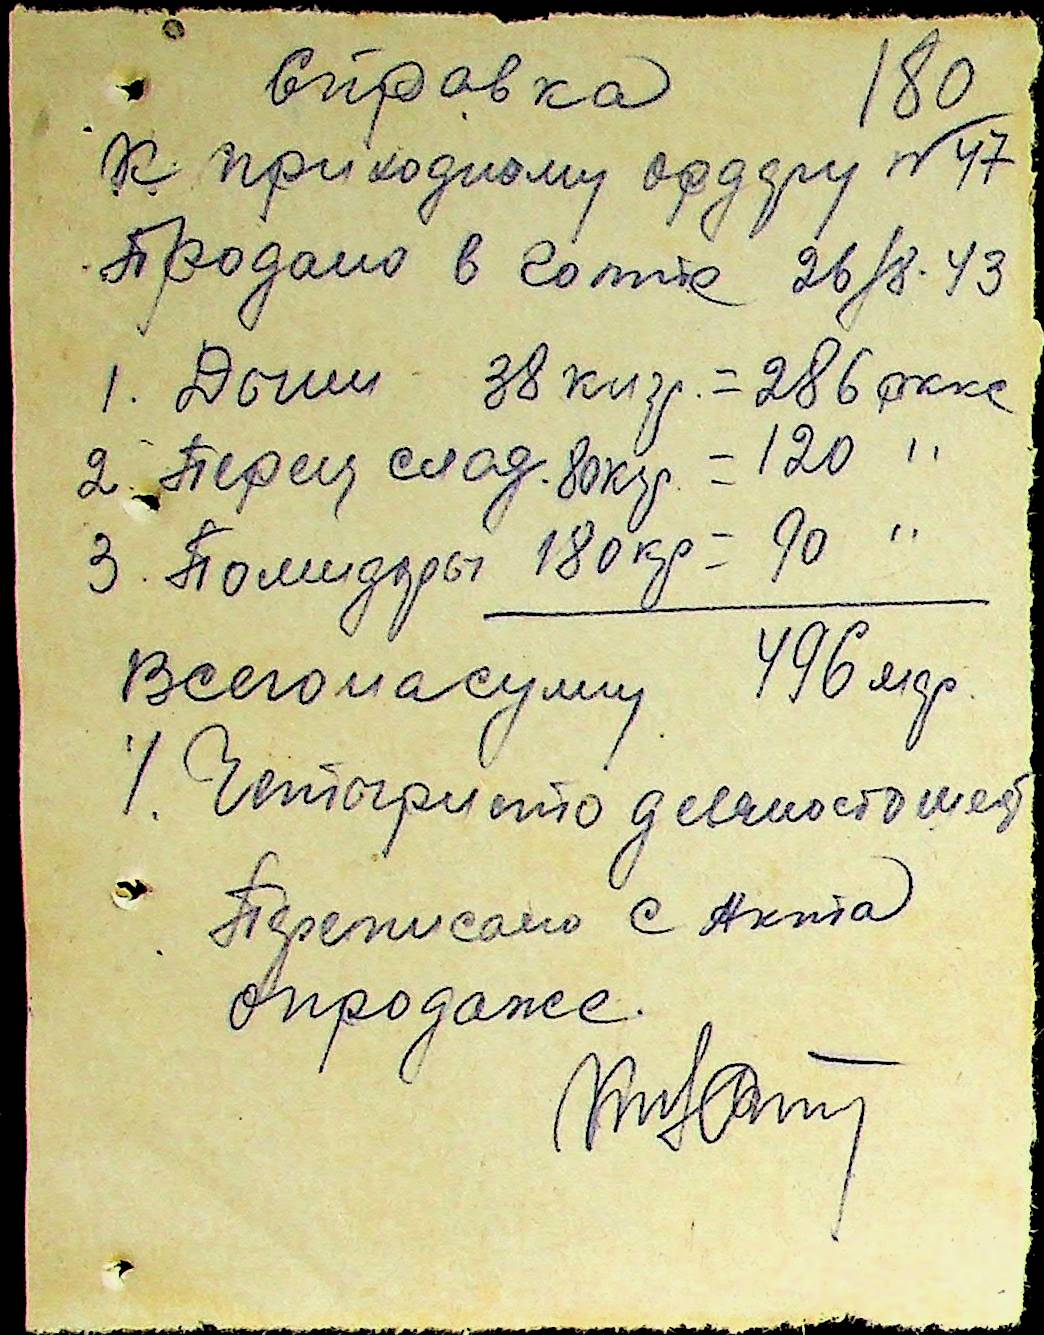 Справка 180
К приходному ордеру № 47
Продано в 26/8. 43
1. Дыни 38 килгр. = 286
2. Перец слад. 80кгр. = 120 "
3. Помидоры 180кгр = 90 "
Всего на сумму 496
Четыриста девяносто шест
Переписано с Акта
о продаже.